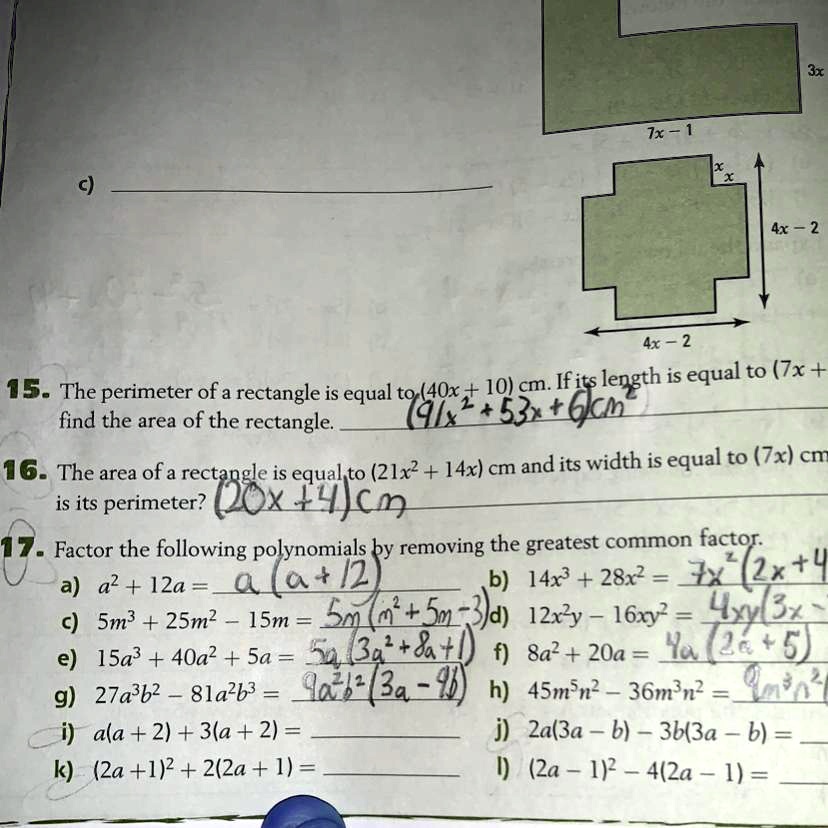 3x
7x − 1
c)
x
x
4x − 2
4x − 2
15. The perimeter of a rectangle is equal to (40x + 10) cm. If its length is equal to (7x +
find the area of the rectangle. (91x² + 53x + 6)cm²
16. The area of a rectangle is equal to (21x² + 14x) cm and its width is equal to (7x) cm
is its perimeter? (20x + 4) cm
17. Factor the following polynomials by removing the greatest common factor.
a) a² + 12a = a(a + 12) b) 14x³ + 28x² = 7x²(2x + 4
c) 5m³ + 25m² − 15m = 5m(m² + 5m − 3) d) 12x²y − 16xy² = 4xy(3x −
e) 15a³ + 40a² + 5a = 5a(3a² + 8a + 1) f) 8a² + 20a = 4a(2a + 5)
g) 27a³b² − 81a²b³ = 9a²b²(3a − 9b) h) 45m⁵n² − 36m³n² = 9m³n²(
i) a(a + 2) + 3(a + 2) = j) 2a(3a − b) − 3b(3a − b) =
k) (2a +1)² + 2(2a + 1) = l) (2a − 1)² − 4(2a − 1) =